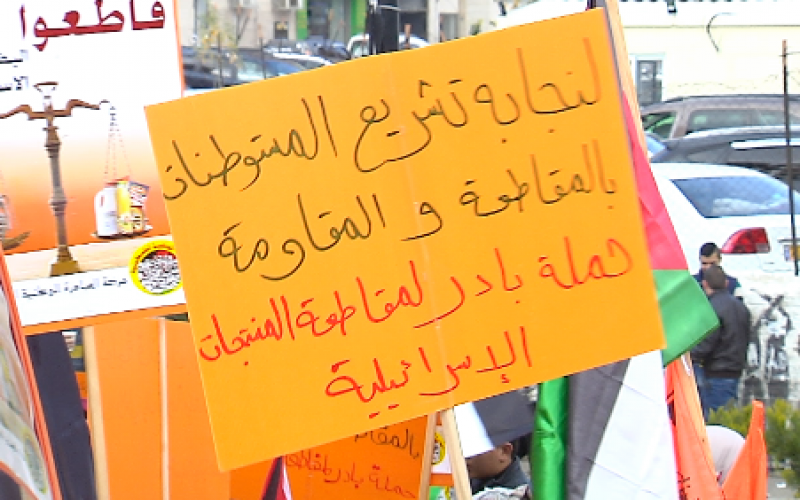 قاطعوا
لنجابه تشريع المستوطنات
بالمقاطعة و المقاومة
حملة بادر لمقاطعة المنتجات
الإسرائيلية
حركة المبادرة الوطنية
حملة بادر